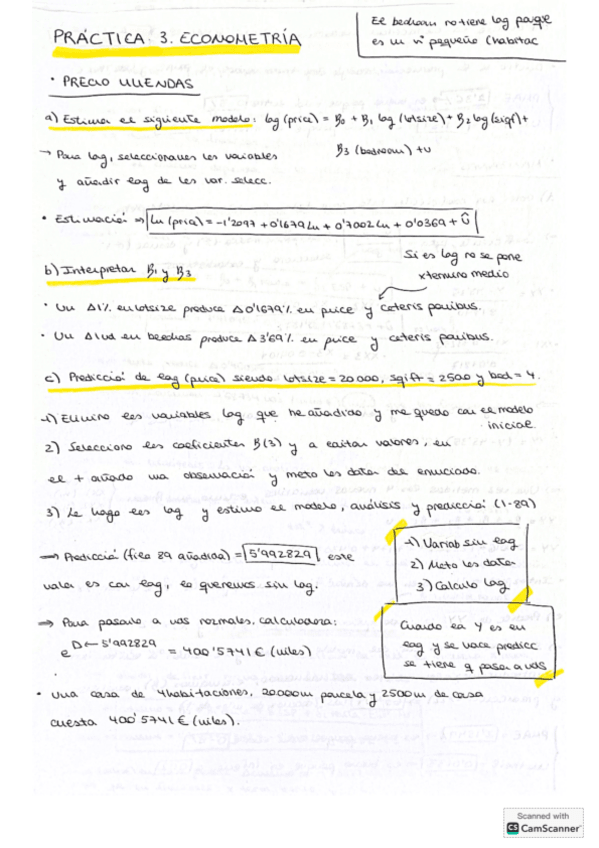 PRÁCTICA 3. ECONOMETRÍA
El bedroom no tiene log porque
es un nº pequeño (habitac
• PRECIO VIVIENDAS
a) Estimar el siguiente modelo: log (price) = B0 + B1 log (lotsize) + B2 log (sqrf) +
B3 (bedroom) + u
→ Para log, seleccionamos las variables
y añadir log de las var. selecc.
• Estimación ⇒ ln (price) = -1'2097 + 0'1679 ln + 0'7002 ln + 0'0369 + û
b) Interpretar B1 y B3
Si es log no se pone
xtermino medio
• Un Δ1% en lotsize produce Δ0'1679% en price y ceteris paribus.
• Un Δ1ud en bedroom produce Δ3'69% en price y ceteris paribus.
c) Predicción de log (price) siendo lotsize = 20000, sqrft = 2500 y bed = 4.
1) Elimino las variables log que he añadido y me quedo con el modelo
inicial
2) Selecciono los coeficientes B(3) y a editar valores, en
el + añado una observación y meto los datos del enunciado.
3) Le hago los log y estimo el modelo, análisis y predicción (1-89)
⇒ Predicción (fila 89 añadida) = 5'992829 este
valor es con log, lo queremos sin log.
1) Variab sin log
2) Meto los datos
3) Calculo log
⇒ Para pasarlo a uds normales. calculadora:
e 5'992829 = 400'5741 € (miles)
Cuando la Y es en
log y se hace predicc
se tiene q pasar a uds
• Una casa de 4 habitaciones, 20000m parcela y 2500m de casa
cuesta 400'5741 € (miles).
Scanned with
CS CamScanner